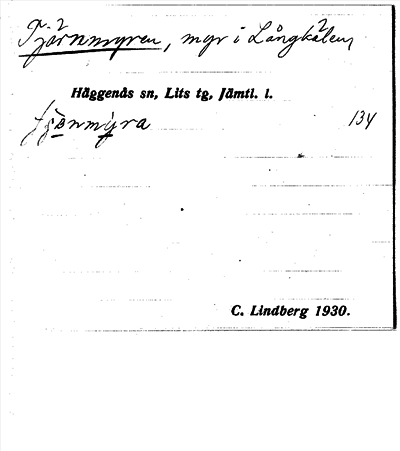 Tjärnmyren, myr i Långkälen,
Häggenås sn, Lits tg, Jämtl. l.
134
C. Lindberg 1930.